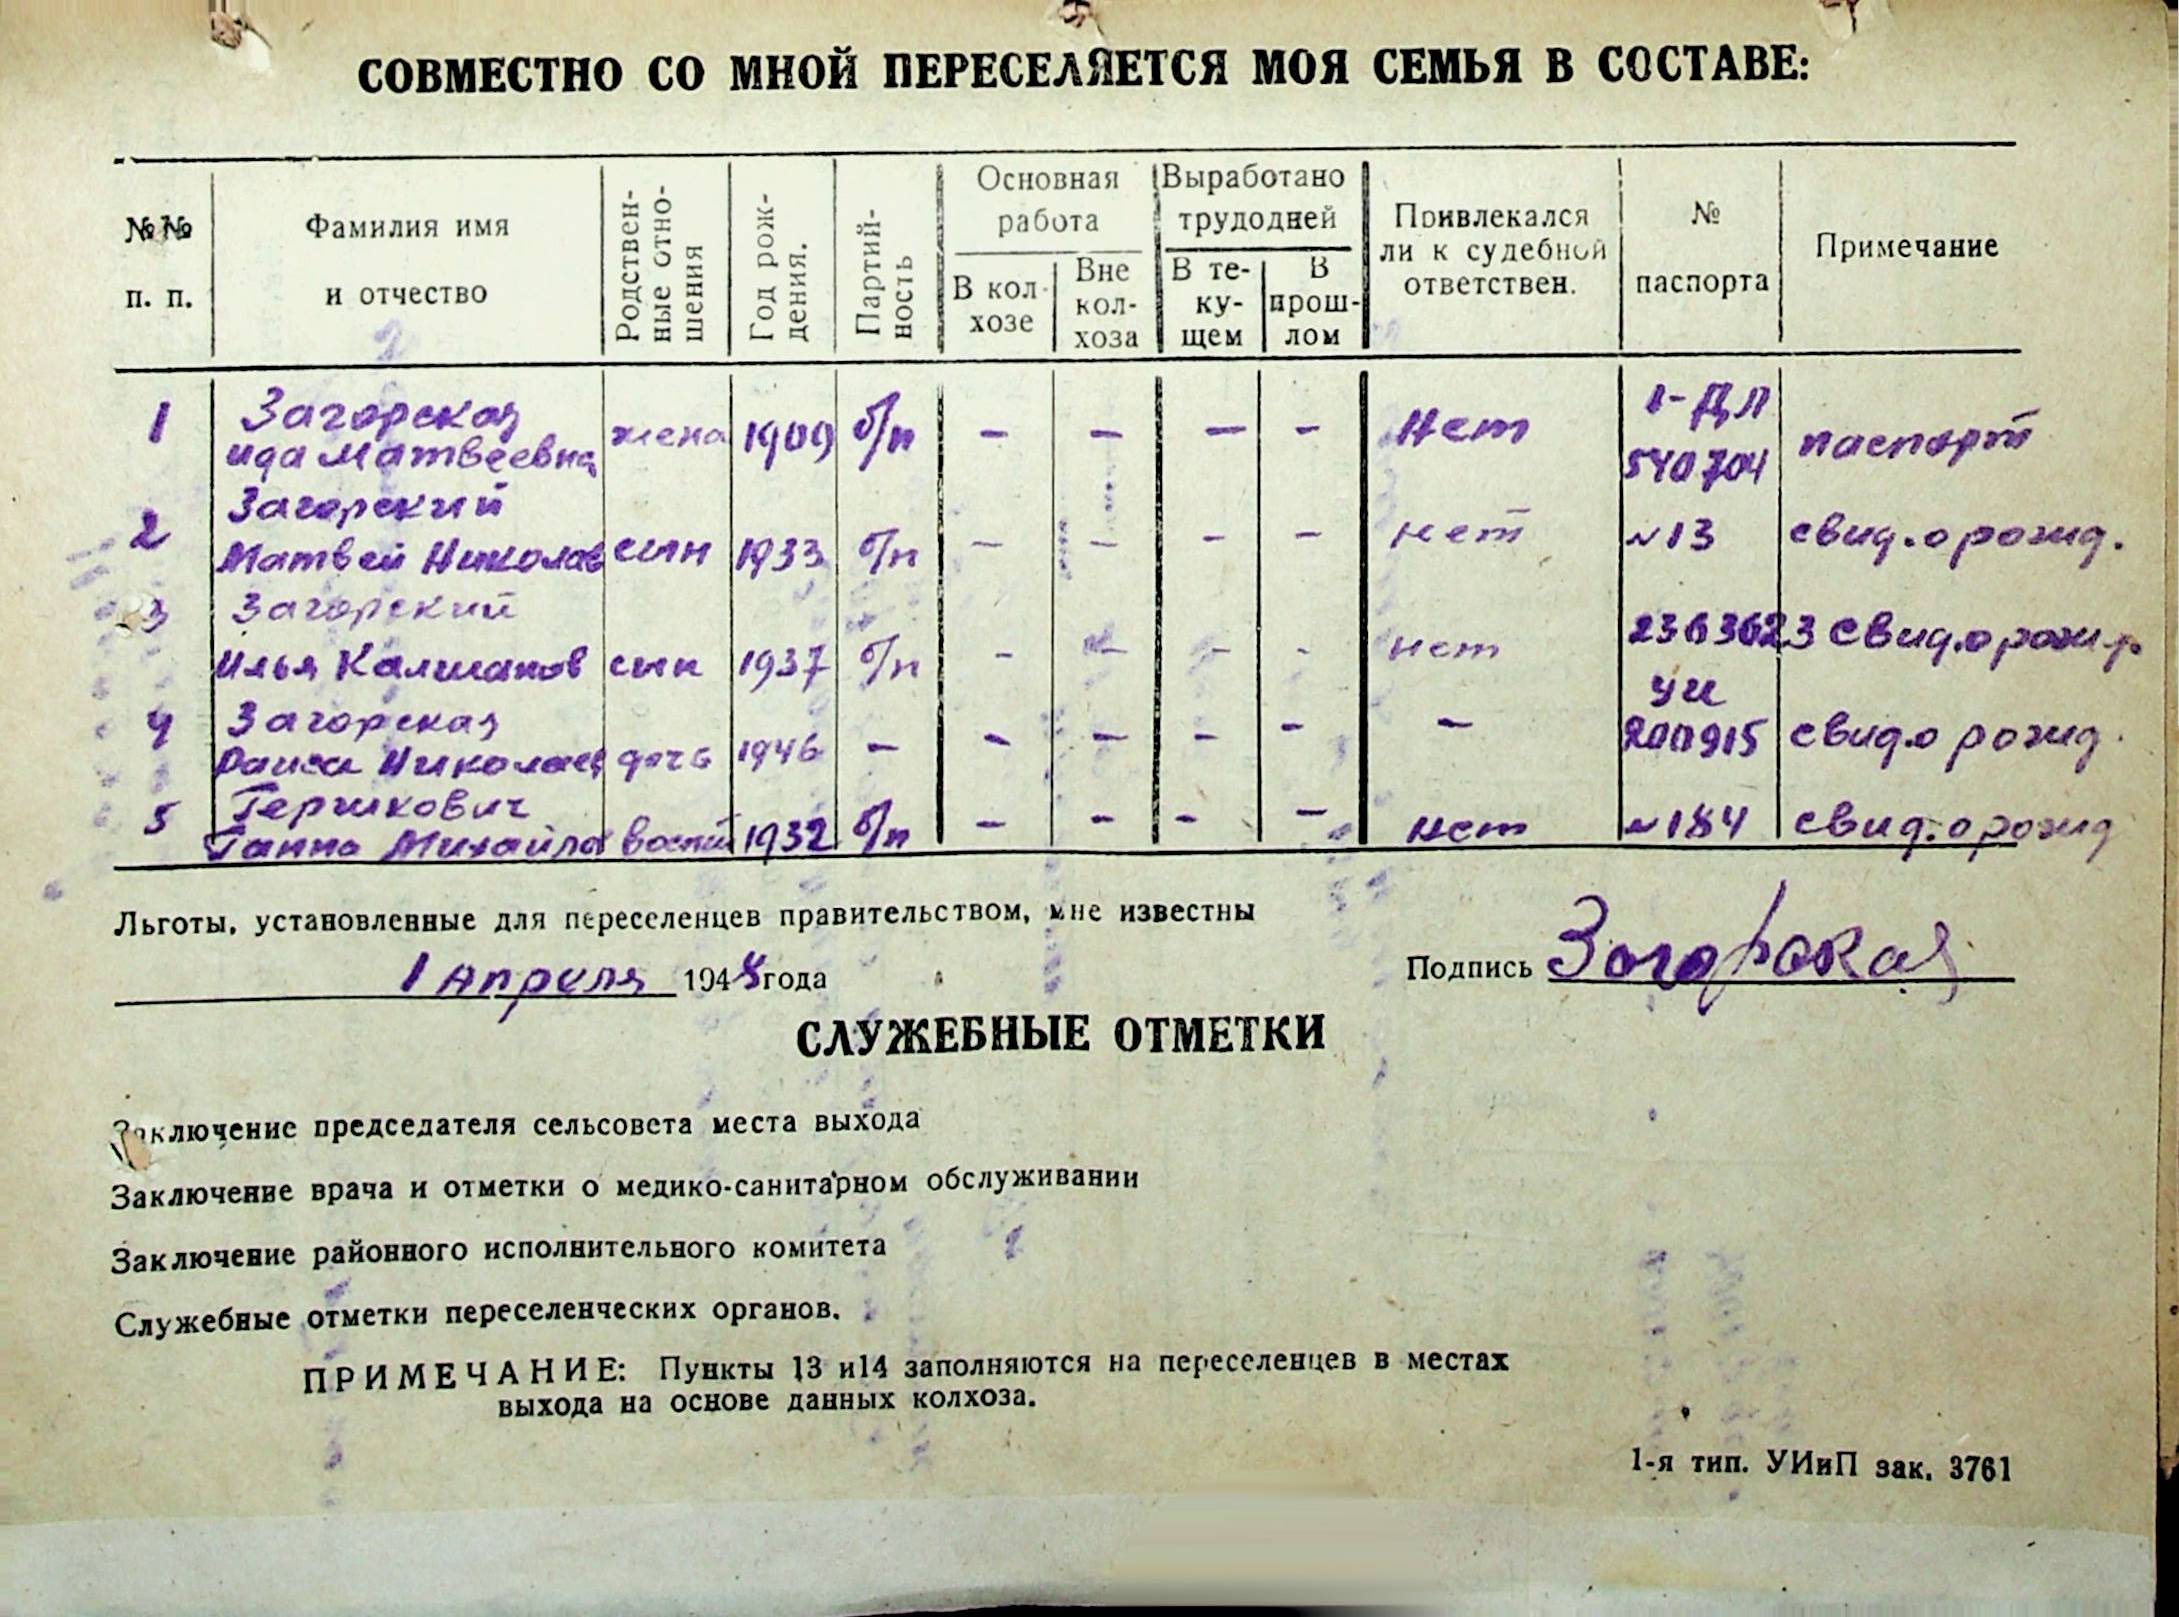 СОВМЕСТНО СО МНОЙ ПЕРЕСЕЛЯЕТСЯ МОЯ СЕМЬЯ В СОСТАВЕ:
№№ п. п.
Фамилия имя и отчество
Родствен-ные отно-шения
Год рож-дения.
Партий-ность
Основная работа
В кол-хозе
Вне кол-хоза
Выработано трудодней
В те-ку-щем
В прош-лом
Привлекался ли к судебной ответствен.
№ паспорта
Примечание
1 Загорская Ида Матвеевна жена 1909 б/п - - - - Нет 1-ДЛ 540704 паспорт
2 Загорский Матвей Николаев сын 1933 б/п - - - - нет №13 свид. о рожд.
3 Загорский Илья Калманов сын 1937 б/п - - - - нет 2363623 свид. о рожд.
4 Загорская Раиса Николаев дочь 1946 - - - - - - УИ 200915 свид. о рожд.
5 Гершкович Ганна Михайло воспит 1932 б/п - - - - нет №184 свид. о рожд
Льготы, установленные для переселенцев правительством, мне известны
1 Апреля 1948 года
Подпись Загорская
СЛУЖЕБНЫЕ ОТМЕТКИ
Заключение председателя сельсовета места выхода
Заключение врача и отметки о медико-санитарном обслуживании
Заключение районного исполнительного комитета
Служебные отметки переселенческих органов.
ПРИМЕЧАНИЕ: Пункты 13 и14 заполняются на переселенцев в местах
выхода на основе данных колхоза.
1-я тип. УИиП зак. 3761